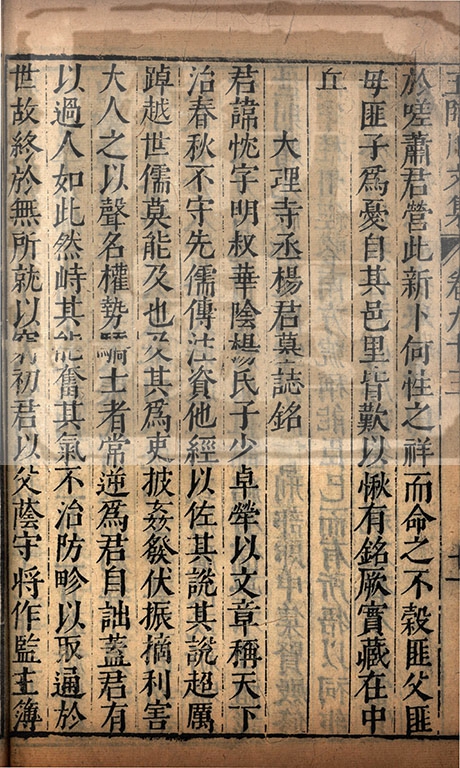 王臨川文集 卷九十三 十一
於嗟蕭君營此新卜何性之祥而命之不穀匪父匪
母匪子為憂自其邑里皆歎以愀有銘厥實藏在中
丘
大理寺丞楊君墓誌銘
君諱忱字明叔華陰楊氏子少卓犖以文章稱天下
治春秋不守先儒傳注資他經以佐其說其說超厲
踔越世儒莫能及也及其為吏披姦發伏振擿利害
大人之以聲名權勢驕士者常逆為君自詘蓋君有
以過人如此然峙其能奮其氣不治防畛以取通於
世故終於無所就以窮初君以父蔭守將作監主簿